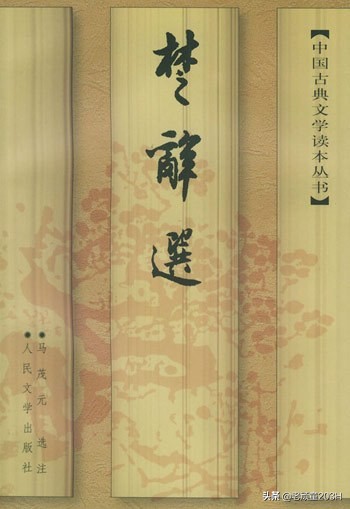 【中国古典文学读本丛书】
楚辭選
●马茂元 选注
●人民文学出版社
头条 @老咸童203H